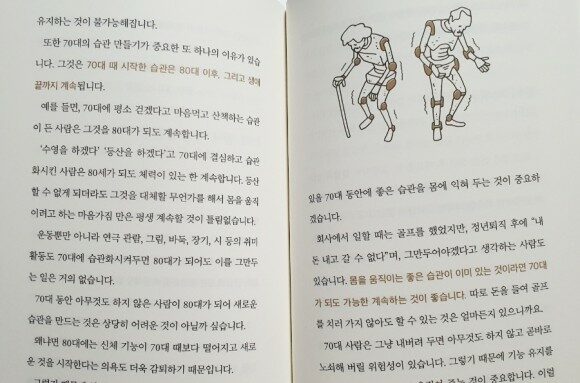 유지하는 것이 불가능해집니다.
또한 70대의 습관 만들기가 중요한 또 하나의 이유가 있습
니다. 그것은 70대 때 시작한 습관은 80대 이후, 그리고 생애
끝까지 계속됩니다.
예를 들면, 70대에 평소 걷겠다고 마음먹고 산책하는 습관
이 든 사람은 그것을 80대가 되도 계속합니다.
‘수영을 하겠다’ ‘등산을 하겠다’고 70대에 결심하고 습관
화시킨 사람은 80세가 되도 체력이 있는 한 계속합니다. 등산
할 수 없게 되더라도 그것을 대체할 무언가를 해서 몸을 움직
이려고 하는 마음가짐 만은 평생 계속할 것이 틀림없습니다.
운동뿐만 아니라 연극 관람, 그림, 바둑, 장기, 시 등의 취미
활동도 70대에 습관화시켜두면 80대가 되어도 이를 그만두
는 일은 거의 없습니다.
70대 동안 아무것도 하지 않은 사람이 80대가 되어 새로운
습관을 만드는 것은 상당히 어려운 것이 아닐까 싶습니다.
왜냐면 80대에는 신체 기능이 70대 때보다 떨어지고 새로
운 것을 시작한다는 의욕도 더욱 감퇴하기 때문입니다.
있음 70대 동안에 좋은 습관을 몸에 익혀 두는 것이 중요하
겠습니다.
회사에서 일할 때는 골프를 했었지만, 정년퇴직 후에 “내
돈 내고 갈 수 없다”며, 그만두어야겠다고 생각하는 사람도
있습니다. 몸을 움직이는 좋은 습관이 이미 있는 것이라면 70대
가 되도 가능한 계속하는 것이 좋습니다. 따로 돈을 들여 골프
를 치러 가지 않아도 할 수 있는 것은 얼마든지 있으니까요.
70대 사람은 그냥 내버려 두면 아무것도 하지 않고 곧바로
노쇠해 버릴 위험성이 있습니다. 그렇기 때문에 기능 유지를